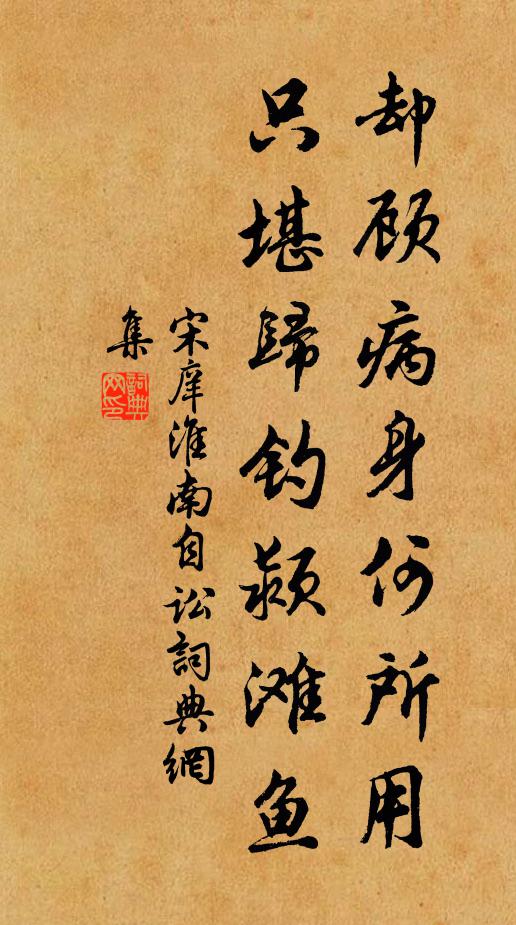 却顾病身何所用
只堪歸钓颍滩鱼
宋庠淮南自讼詞典網
集
詞典
网印